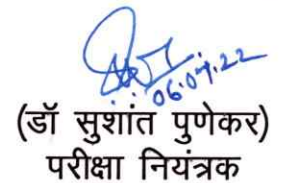 06.04.22
(डॉ सुशांत पुणेकर)
परीक्षा नियंत्रक